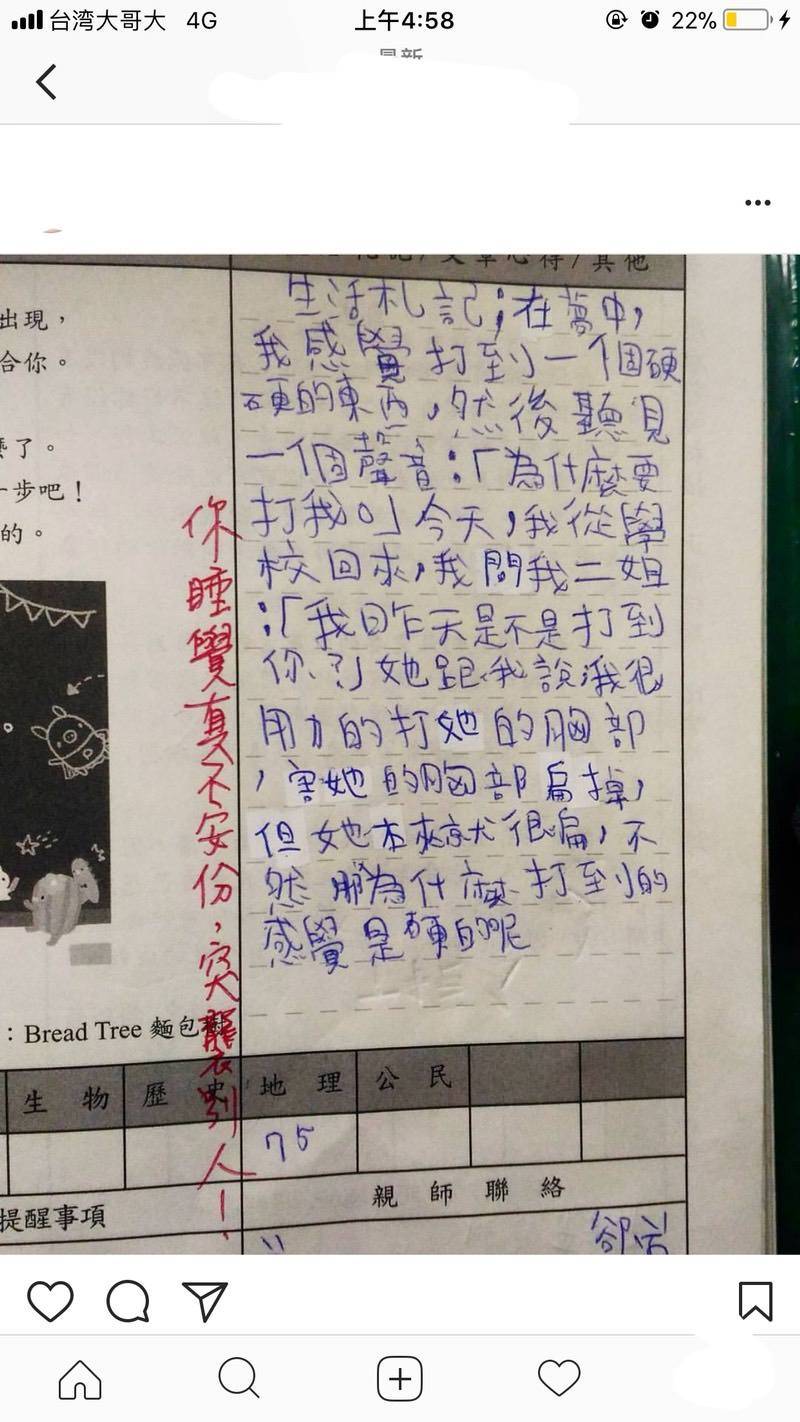 台湾大哥大 4G 上午4:58 22%
最新
生活札記；在夢中，
我感覺打到一個硬
硬的東西，然後聽見
一個聲音：「為什麼要
打我。」今天，我從學
校回來，我問我二姐
：「我昨天是不是打到
你？」她跟我說我很
用力的打她的胸部
，害她的胸部扁掉，
但她本來就很扁，不
然那為什麼打到的
感覺是硬的呢
你睡覺真不安份，突襲別人！
出現，
合你。
麼了。
一步吧！
的。
：Bread Tree 麵包樹
生物 歷史 地理 公民
75
提醒事項
親師聯絡